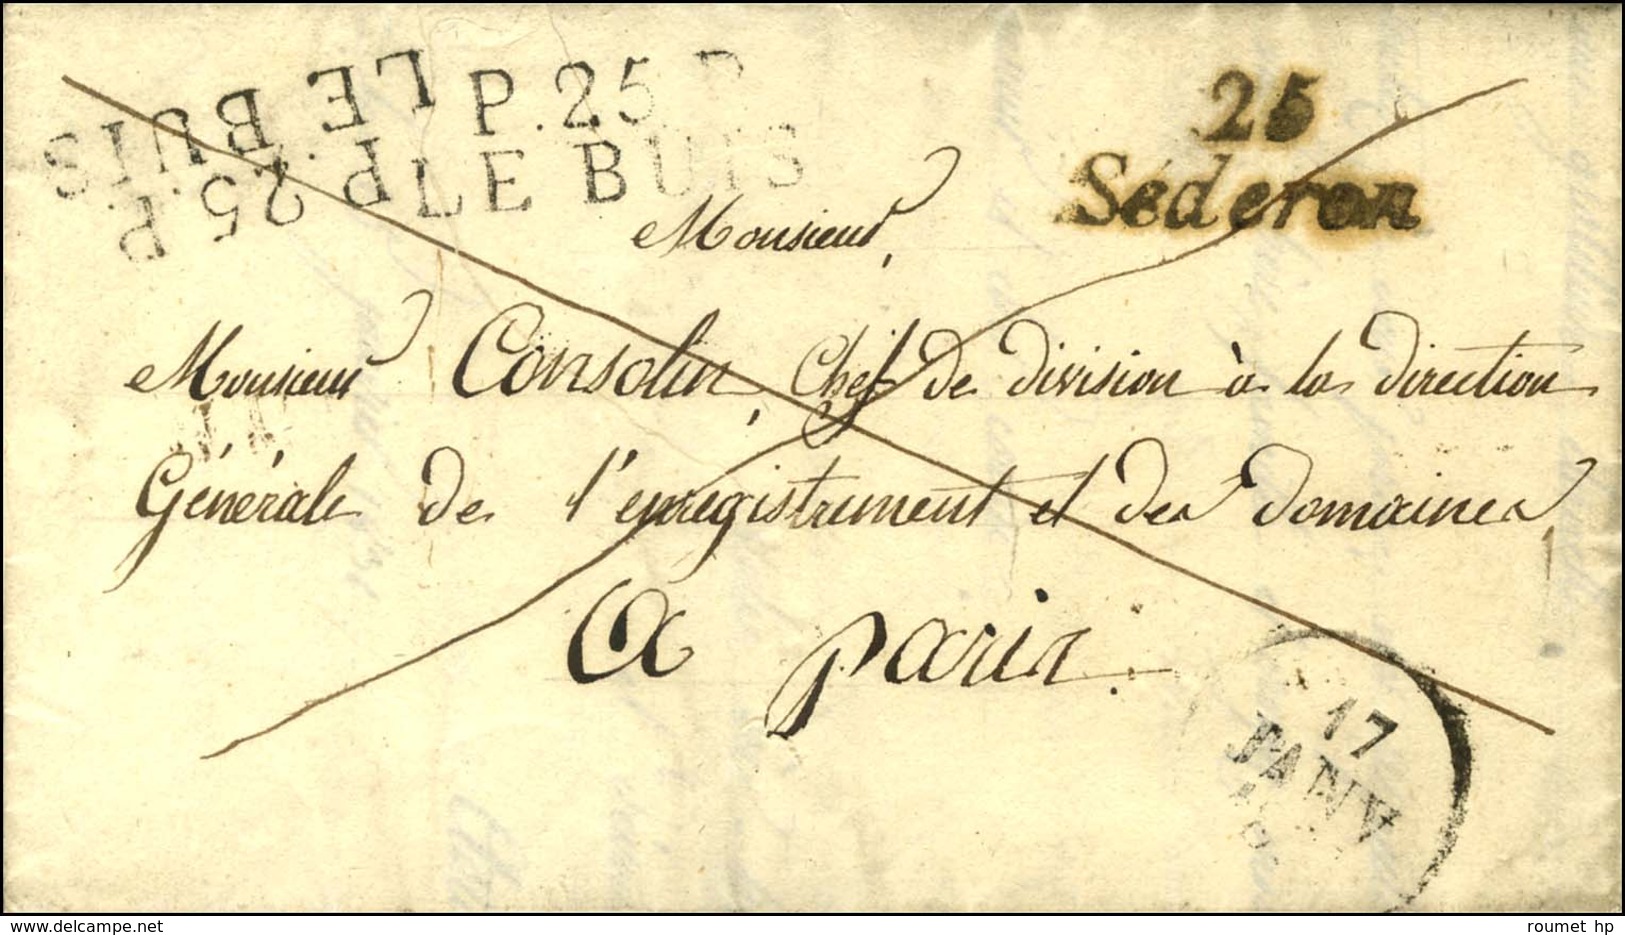 P. 25 P.
LE BUIS
P. 25 P
LE BUIS
25
Séderon
Monsieur,
Monsieur Consolin, Chef de division à la direction
Générale de l'enregistrement et des domaines,
A paris.
17
JANV
roumet hp